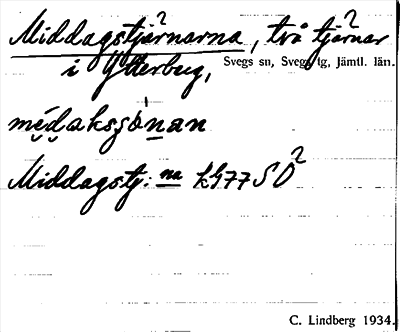 Middagstjärnarna, två tjärnar
i Ytterberg, Svegs sn, Svegs tg, Jämtl. län.
médaksjònan
Middagstj:na LG77SO²
C. Lindberg 1934.